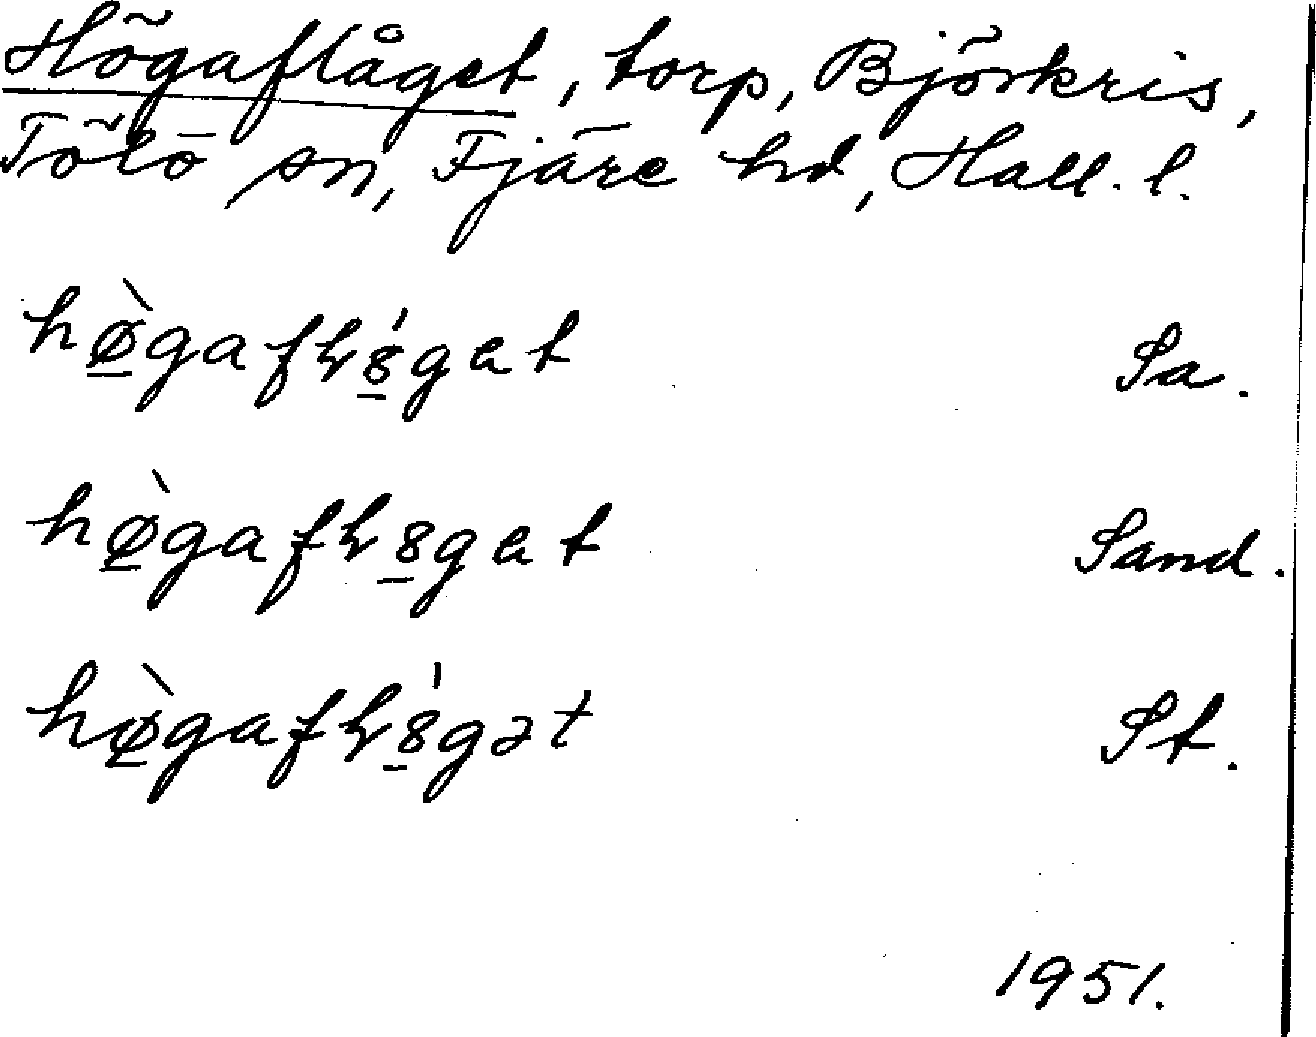 Högaflåget, torp, Björkris,
Tölö sn, Fjäre hd, Hall. l.
hø̲̀gafɫ8̲́get Sa.
hø̲̀gafɫ8̲get Sand.
hø̲̀gafɫ8̲́gət St.
1951.